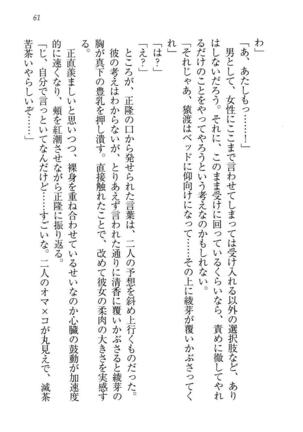 61
わ」
「あ、あたしもっ……」
男として、女性にここまで言わせてしまっては受け入れる以外の選択肢など、あり
はしないだろう。それに、このまま受けに回っているくらいなら、責めに徹してやれ
るだけのことをやってやろうという考えなのかもしれない。
「それじゃあ、猿渡はベッドに仰向けになって……その上に綾芽が覆いかぶさってく
れ」
「は？」
「え？」
ところが、正隆の口から発せられた言葉は、二人の予想を斜め上行くものだった。
彼の考えはわからないが、とりあえず言われた通りに清香に覆いかぶさると綾芽の
胸が真下の豊乳を押し潰す。直接触れたことで、改めて彼女の柔肉の大きさを実感す
る。
正直羨ましいと思いつつ、裸身を重ね合わせているせいなのか心臓の鼓動が加速度
的に速くなり、頬を紅潮させながら正隆に振り返る。
「じ、自分で言っといてなんだけど……すごいな。二人のオマ×コが丸見えで、滅茶
苦茶いやらしいぞ……」